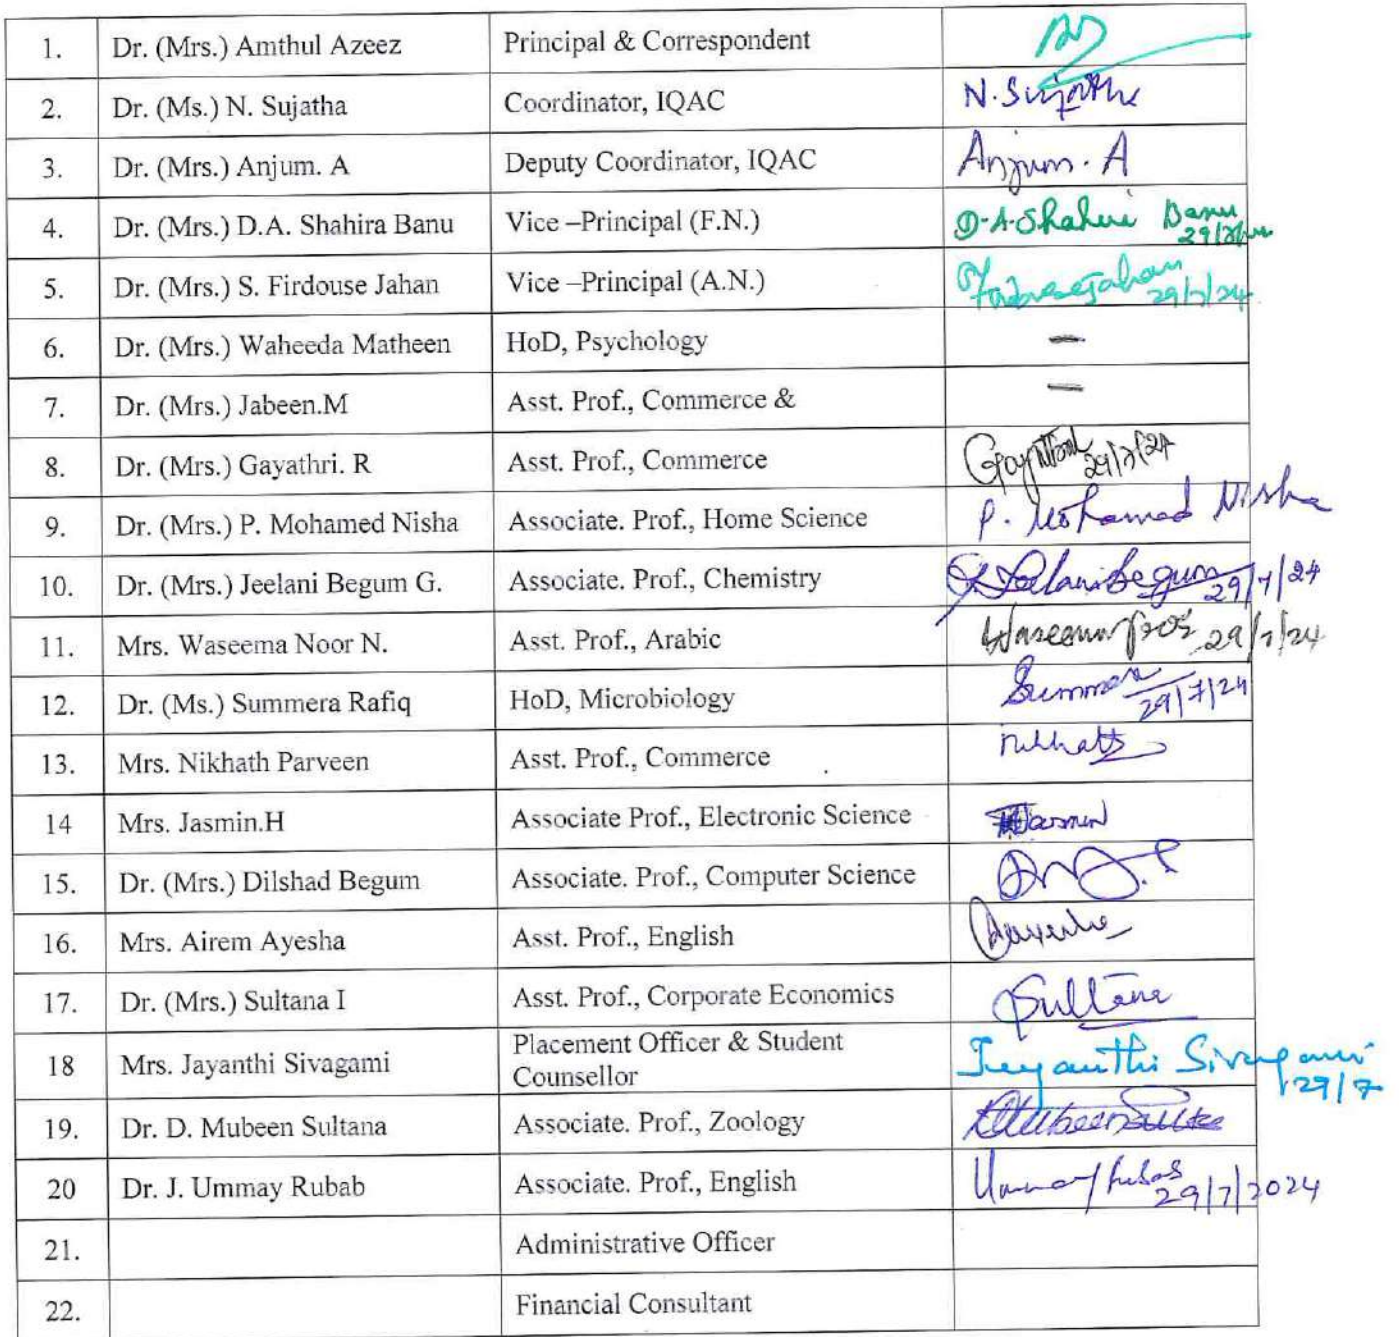 1. Dr. (Mrs.) Amthul Azeez Principal & Correspondent
2. Dr. (Ms.) N. Sujatha Coordinator, IQAC N. Sujatha
3. Dr. (Mrs.) Anjum. A Deputy Coordinator, IQAC Anjum. A
4. Dr. (Mrs.) D.A. Shahira Banu Vice –Principal (F.N.) D.A. Shahira Banu
5. Dr. (Mrs.) S. Firdouse Jahan Vice –Principal (A.N.) 29/7/24
6. Dr. (Mrs.) Waheeda Matheen HoD, Psychology –
7. Dr. (Mrs.) Jabeen.M Asst. Prof., Commerce & –
8. Dr. (Mrs.) Gayathri. R Asst. Prof., Commerce 29/7/24
9. Dr. (Mrs.) P. Mohamed Nisha Associate. Prof., Home Science P. Mohamed Nisha
10. Dr. (Mrs.) Jeelani Begum G. Associate. Prof., Chemistry G. Jeelani Begum 29/7/24
11. Mrs. Waseema Noor N. Asst. Prof., Arabic Waseema Noor 29/7/24
12. Dr. (Ms.) Summera Rafiq HoD, Microbiology Summera 29/7/24
13. Mrs. Nikhath Parveen Asst. Prof., Commerce Nikhath
14 Mrs. Jasmin.H Associate Prof., Electronic Science Jasmin
15. Dr. (Mrs.) Dilshad Begum Associate. Prof., Computer Science
16. Mrs. Airem Ayesha Asst. Prof., English
17. Dr. (Mrs.) Sultana I Asst. Prof., Corporate Economics Sultana
18 Mrs. Jayanthi Sivagami Placement Officer & Student Counsellor Jeyanthi Sivagami
29/7
19. Dr. D. Mubeen Sultana Associate. Prof., Zoology
20 Dr. J. Ummay Rubab Associate. Prof., English Ummay Rubab
29/7/2024
21. Administrative Officer
22. Financial Consultant